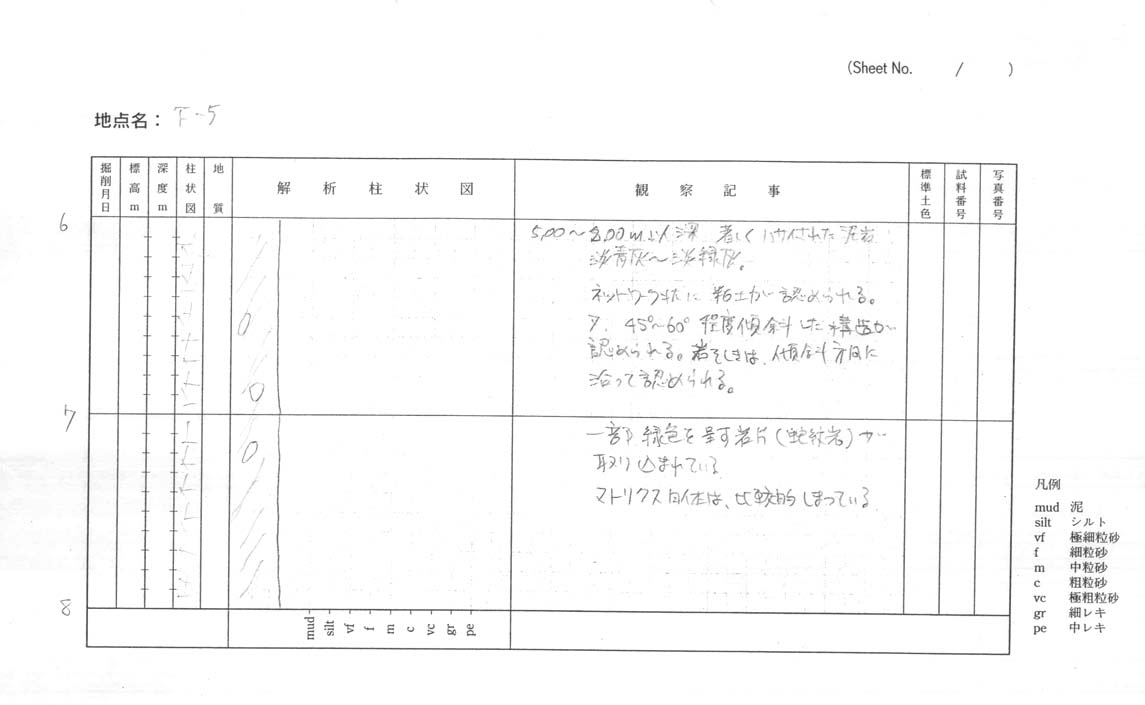 (Sheet No. / )
地点名： F-5
掘削月日 標高m 深度m 柱状図 地質 解析柱状図 観察記事 標準土色 試料番号 写真番号
6
5.00～8.00m以深 著しく された泥岩
淡青灰～淡緑灰。
ネットワーク状に粘土が認められる。
又、45°～60°程度傾斜した構造が
認められる。岩 は、傾斜方向に
沿って認められる。
7
一部緑色を呈す岩片(蛇紋岩)が
取り込まれている
マトリクス自体は、比較的しまっている
8
mud silt vf f m c vc gr pe
凡例
mud 泥
silt シルト
vf 極細粒砂
f 細粒砂
m 中粒砂
c 粗粒砂
vc 極粗粒砂
gr 細レキ
pe 中レキ